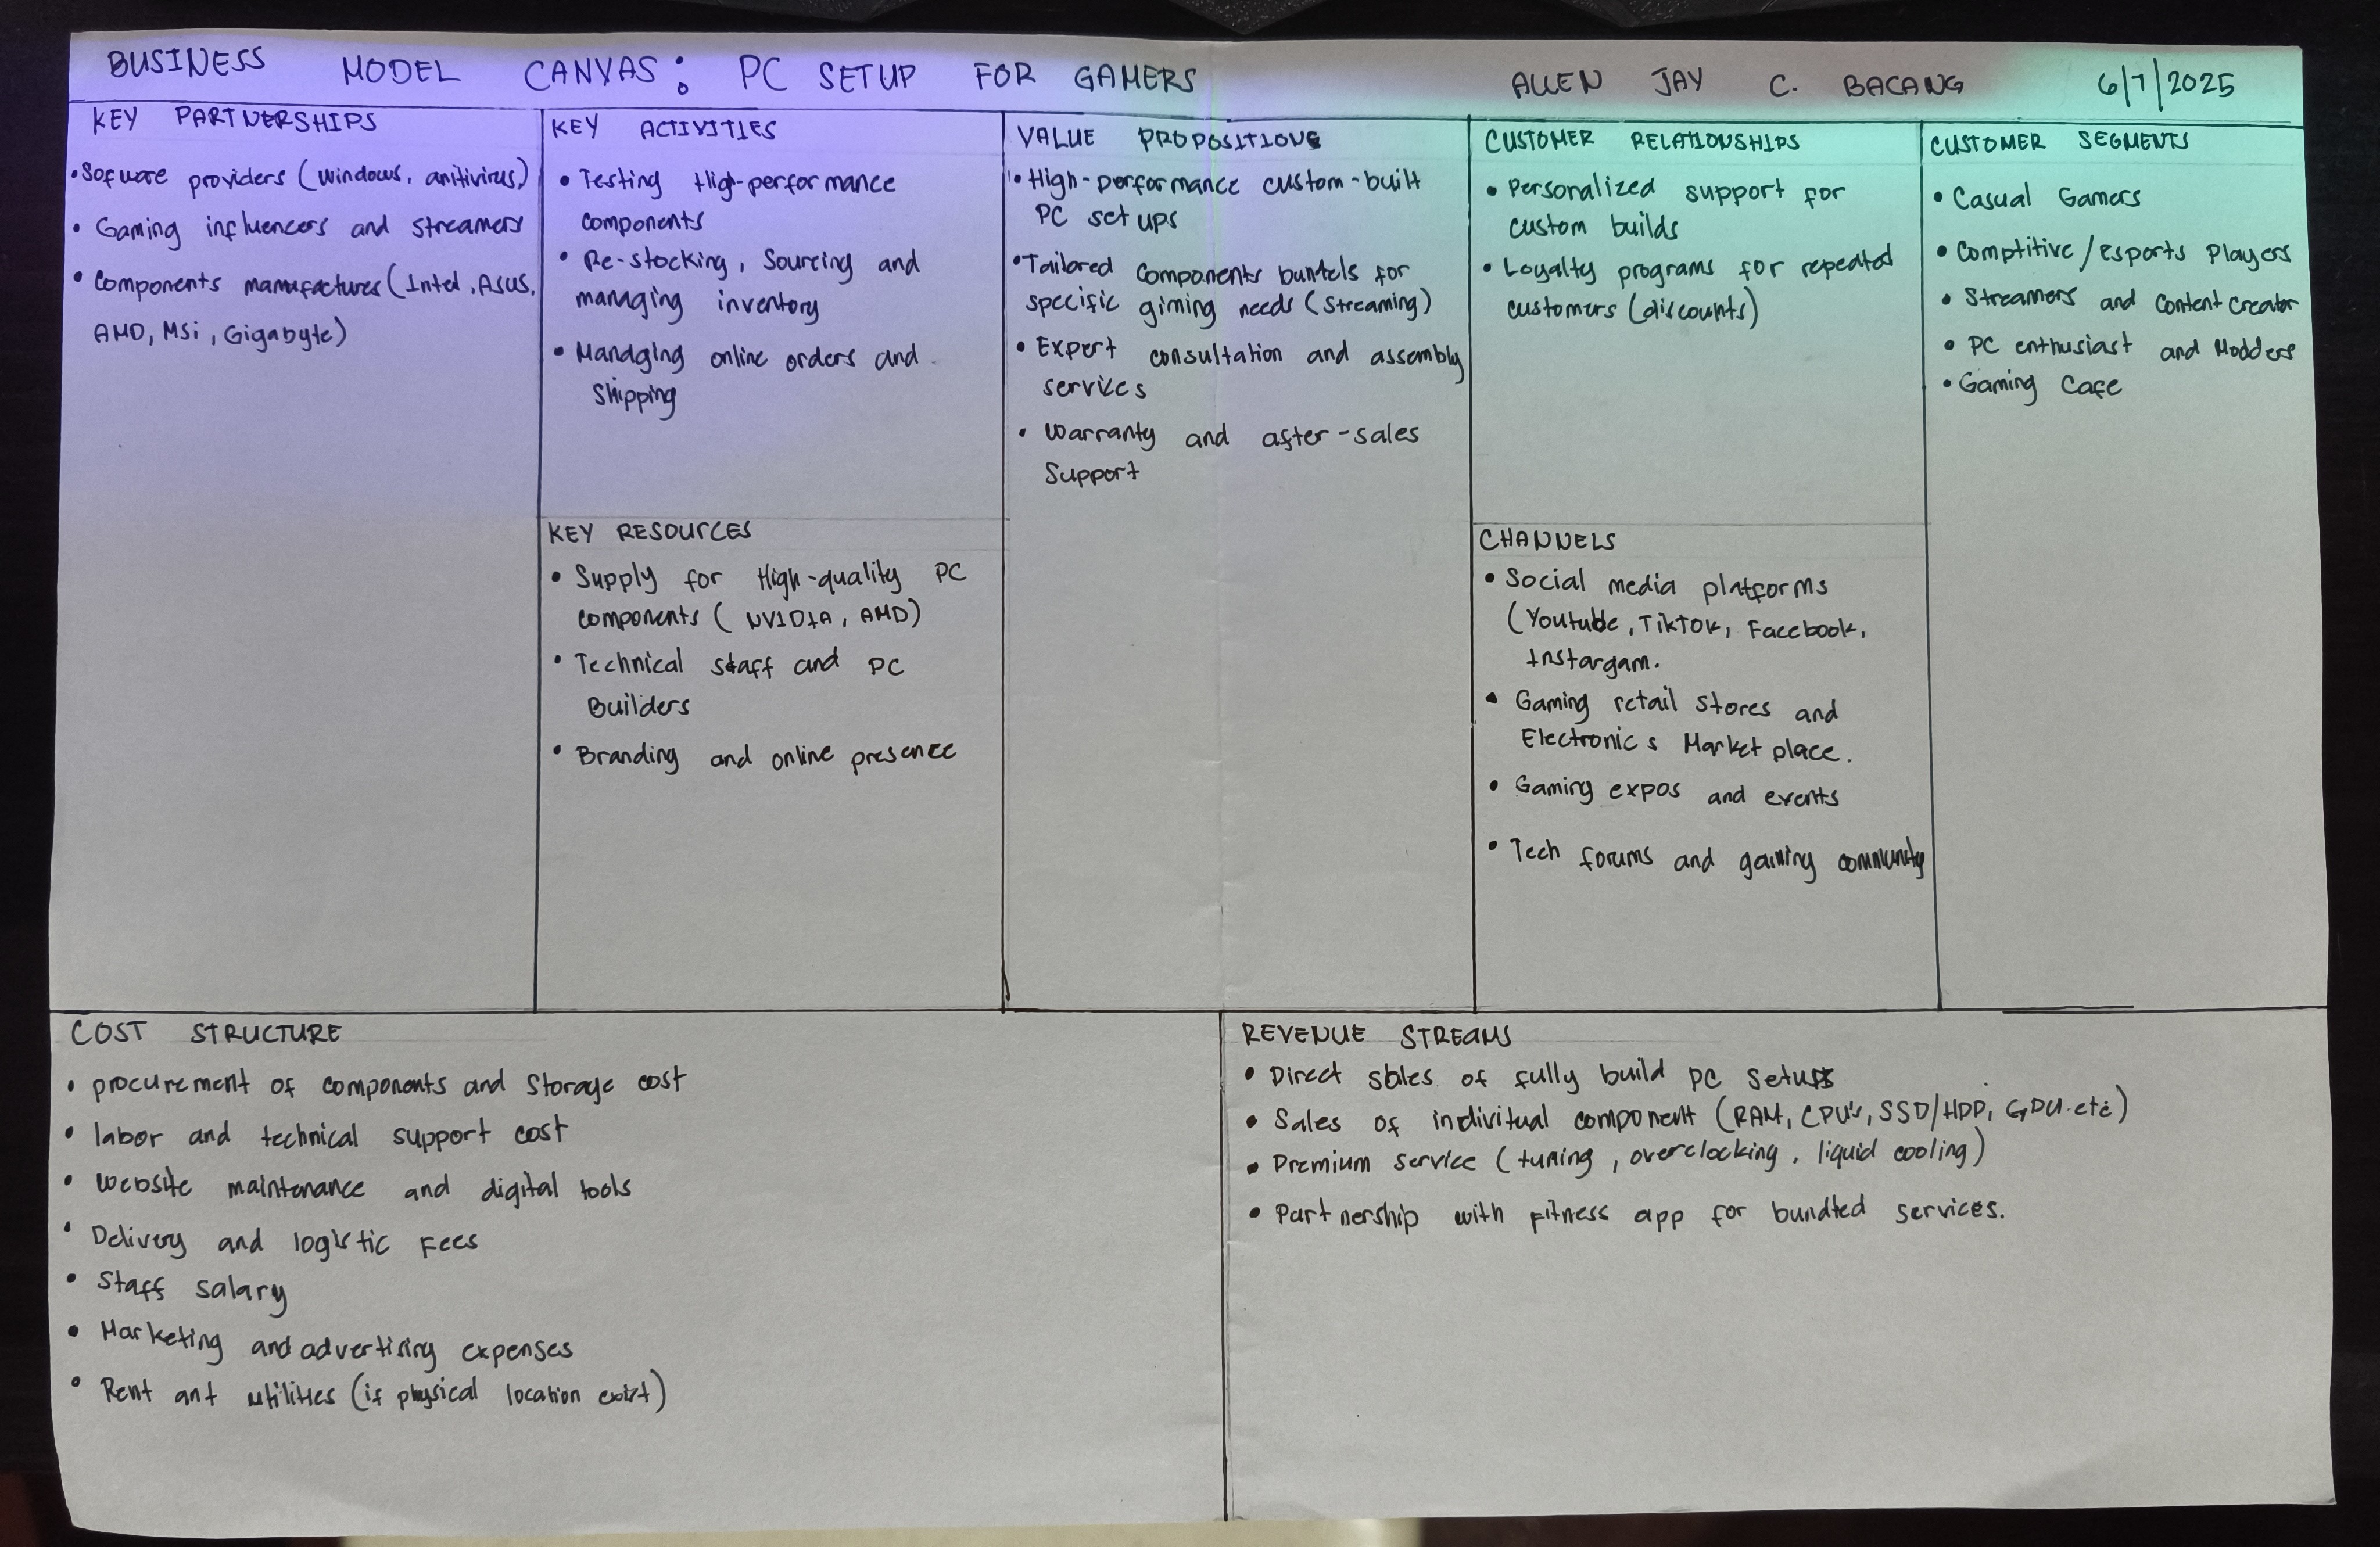 BUSINESS MODEL CANVAS: PC SETUP FOR GAMERS
ALLEN JAY C. BACANG
6/7/2025
KEY PARTNERSHIPS
• Sofware providers (windows, anitivirus)
• Gaming influencers and streamers
• Components manufactures (Intel, ASUS,
AMD, MSi, Gigabyte)
KEY ACTIVITIES
• Testing High-performance
components
• Re-stocking, Sourcing and
managing inventory
• Managing online orders and
Shipping
KEY RESOURCES
• Supply for High-quality PC
components (NVIDIA, AMD)
• Technical staff and PC
Builders
• Branding and online presence
VALUE PROPOSITIONS
• High-performance custom-built
PC set ups
• Tailored components bundels for
specific giming needs (streaming)
• Expert consultation and assembly
services
• Warranty and after-sales
Support
CUSTOMER RELATIONSHIPS
• Personalized support for
custom builds
• Loyalty programs for repeated
customers (discounts)
CHANNELS
• Social media platforms
(Youtube, TikTok, Facebook,
Instargam.
• Gaming retail stores and
Electronics Market place.
• Gaming expos and events
• Tech forums and gaming community
CUSTOMER SEGMENTS
• Casual Gamers
• Comptitive/esports Players
• Streamers and Content Creator
• PC enthusiast and Modders
• Gaming Cafe
COST STRUCTURE
• procurement of components and storage cost
• labor and technical support cost
• website maintenance and digital tools
• Delivery and logistic Fees
• Staff salary
• Marketing and advertising expenses
• Rent ant utilities (if physical location exist)
REVENUE STREAMS
• Direct sales of fully build PC setups
• Sales of indivitual component (RAM, CPU's, SSD/HDD, GPU.etc)
• Premium service (tuning, overclocking, liquid cooling)
• Partnership with fitness app for bundted services.